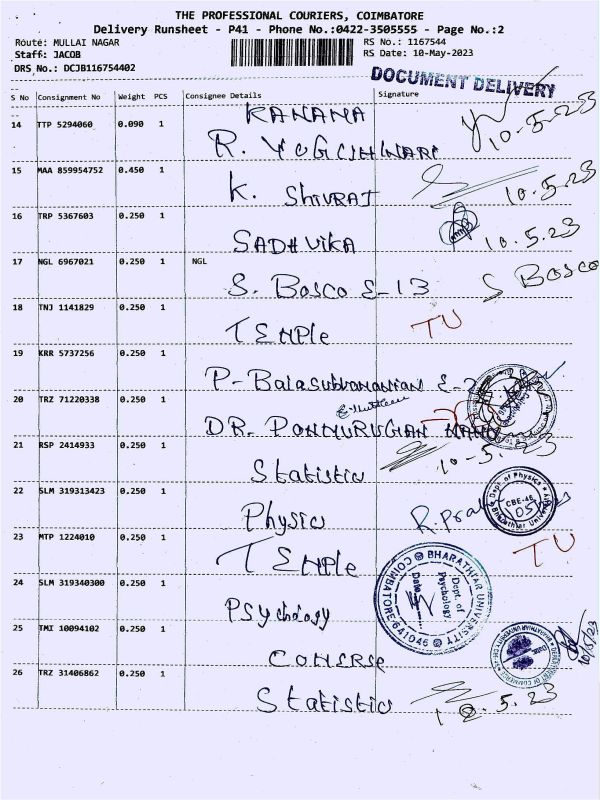 THE PROFESSIONAL COURIERS, COIMBATORE
Delivery Runsheet - P41 - Phone No.:0422-3505555 - Page No.:2
Route: MULLAI NAGAR
RS No.: 1167544
Staff: JACOB
RS Date: 10-May-2023
DRS No.: DCJB116754402
DOCUMENT DELIVERY
S No Consignment No Weight PCS Consignee Details Signature
KANANA
14 TTP 5294060 0.090 1
10-5.23
R.
15 MAA 859954752 0.450 1
K. SHIVRAJ 10.5.23
16 TRP 5367603 0.250 1
SADHVIKA 10.5.23
17 NGL 6967021 0.250 1 NGL
S. Bosco E-13 S BOSCO
18 TNJ 1141829 0.250 1
TEMPle TU
19 KRR 5737256 0.250 1
P- Balasubramanian E-2
20 TRZ 71220338 0.250 1
DR. PONMURUGAN NANO
21 RSP 2414933 0.250 1
10-5.23
Statistic
22 SLM 319313423 0.250 1
Dept. of Physics
CBE-46
Bharathiar University
Physic
23 MTP 1224010 0.250 1
TEMPle TU
BHARATHIAR UNIVERSITY
Dept. of
Psychology
Date
COIMBATORE-641046
24 SLM 319340300 0.250 1
PSychology
25 TMI 10094102 0.250 1
10/5/23
COMERSe
26 TRZ 31406862 0.250 1
Statistic 10.5.23